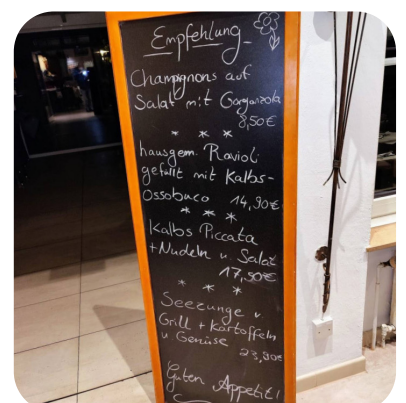 Empfehlung
Champignons auf
Salat mit Gorgonzola
8,50€
* * *
hausgem. Ravioli
gefüllt mit Kalbs-
Ossobuco 14,90€
* * *
Kalbs Piccata
+Nudeln u. Salat
17,50€
* * *
Seezunge v.
Grill + Kartoffeln
u Gemüse
23,90€
Guten Appetit!